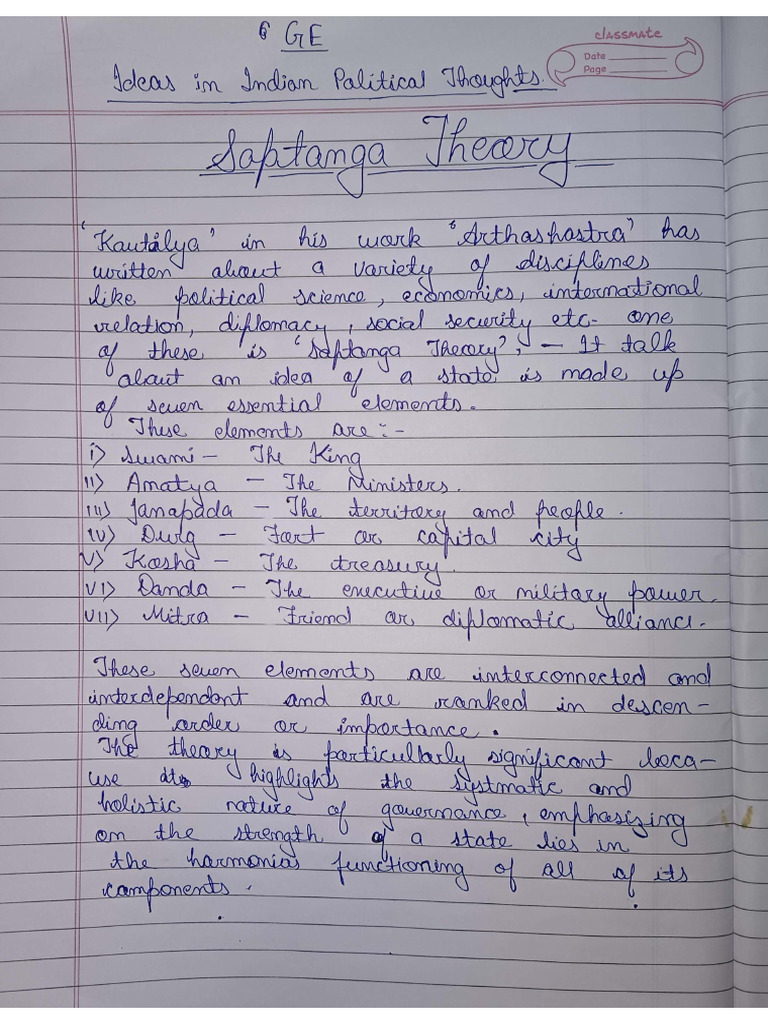 GE
classmate
Date
Page
Ideas in Indian Political Thoughts.
Saptanga Theory
'Kautilya' in his work 'Arthashastra' has
written about a variety of disciplines
like political science, economics, international
relation, diplomacy, social security etc- one
of these is 'Saptanga Theory', - It talk
about an idea of a state is made up
of seven essential elements.
These elements are:-
i) Swami - The King
II) Amatya - The Ministers.
III) Janapada - The territory and people.
IV) Durg - Fort or capital city
V) Kosha - The treasury.
VI) Danda - The executive or military power.
VII) Mitra - Friend or diplomatic alliance.
These seven elements are interconnected and
interdependent and are ranked in descen-
ding order or importance.
The theory is particullarly significant beca-
use its highlights the systmatic and
holistic nature of governance, emphasizing
on the strength of a state lies in
the harmonias functioning of all of its
components.